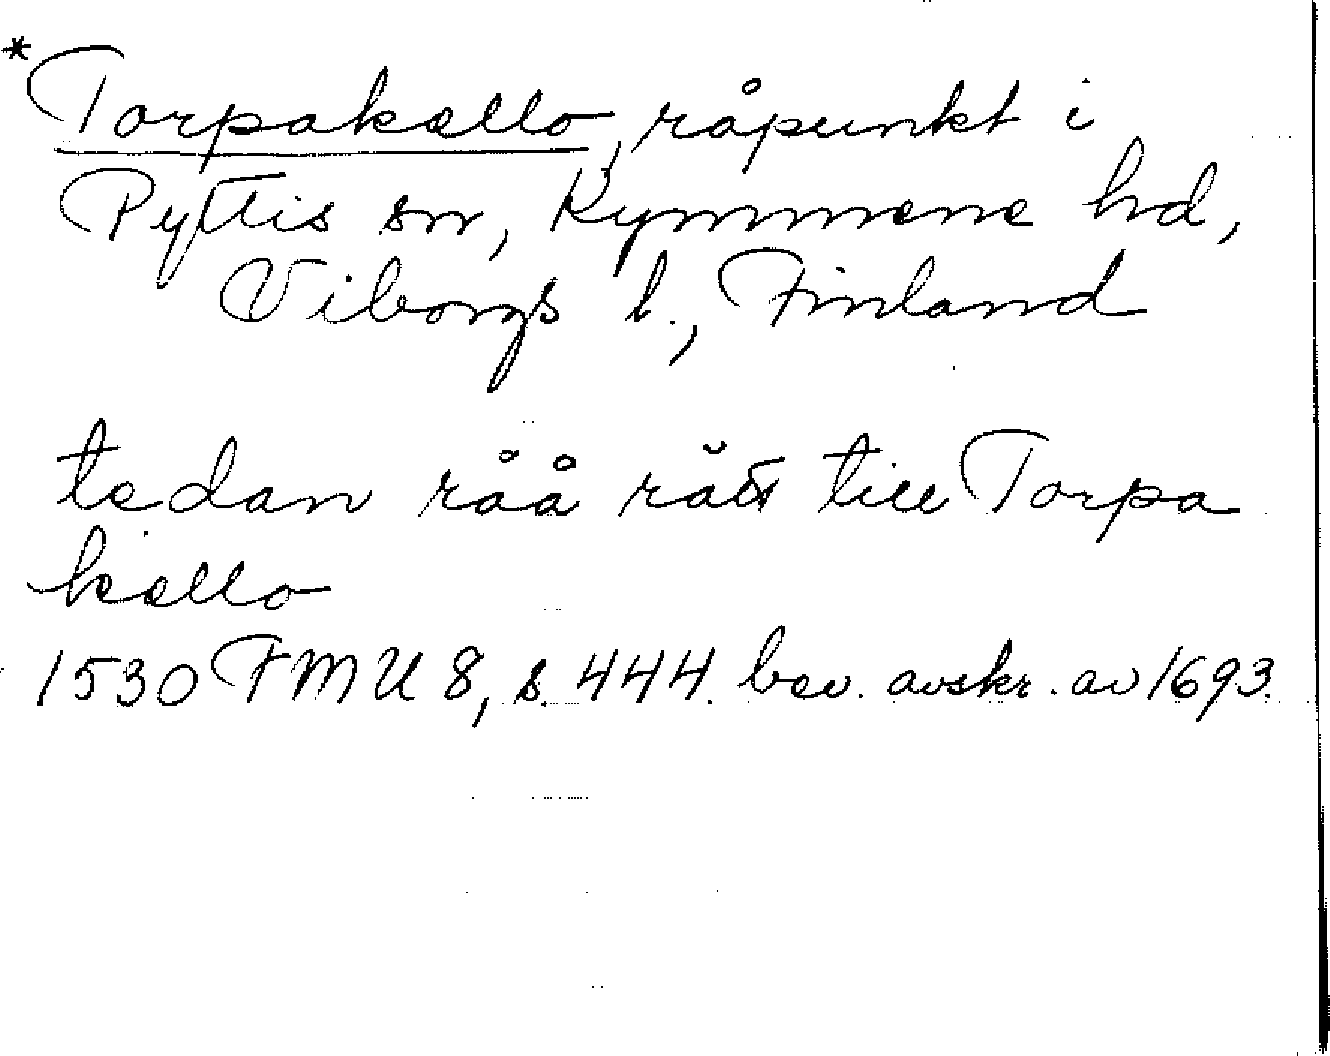 *Torpakællo, råpunkt i
Pyttis sn, Kymmene hd,
Viborgs l., Finland
tedan råå rätt till Torpa
kællo
1530 FMU 8, s. 444. bev. avskr. av 1693.